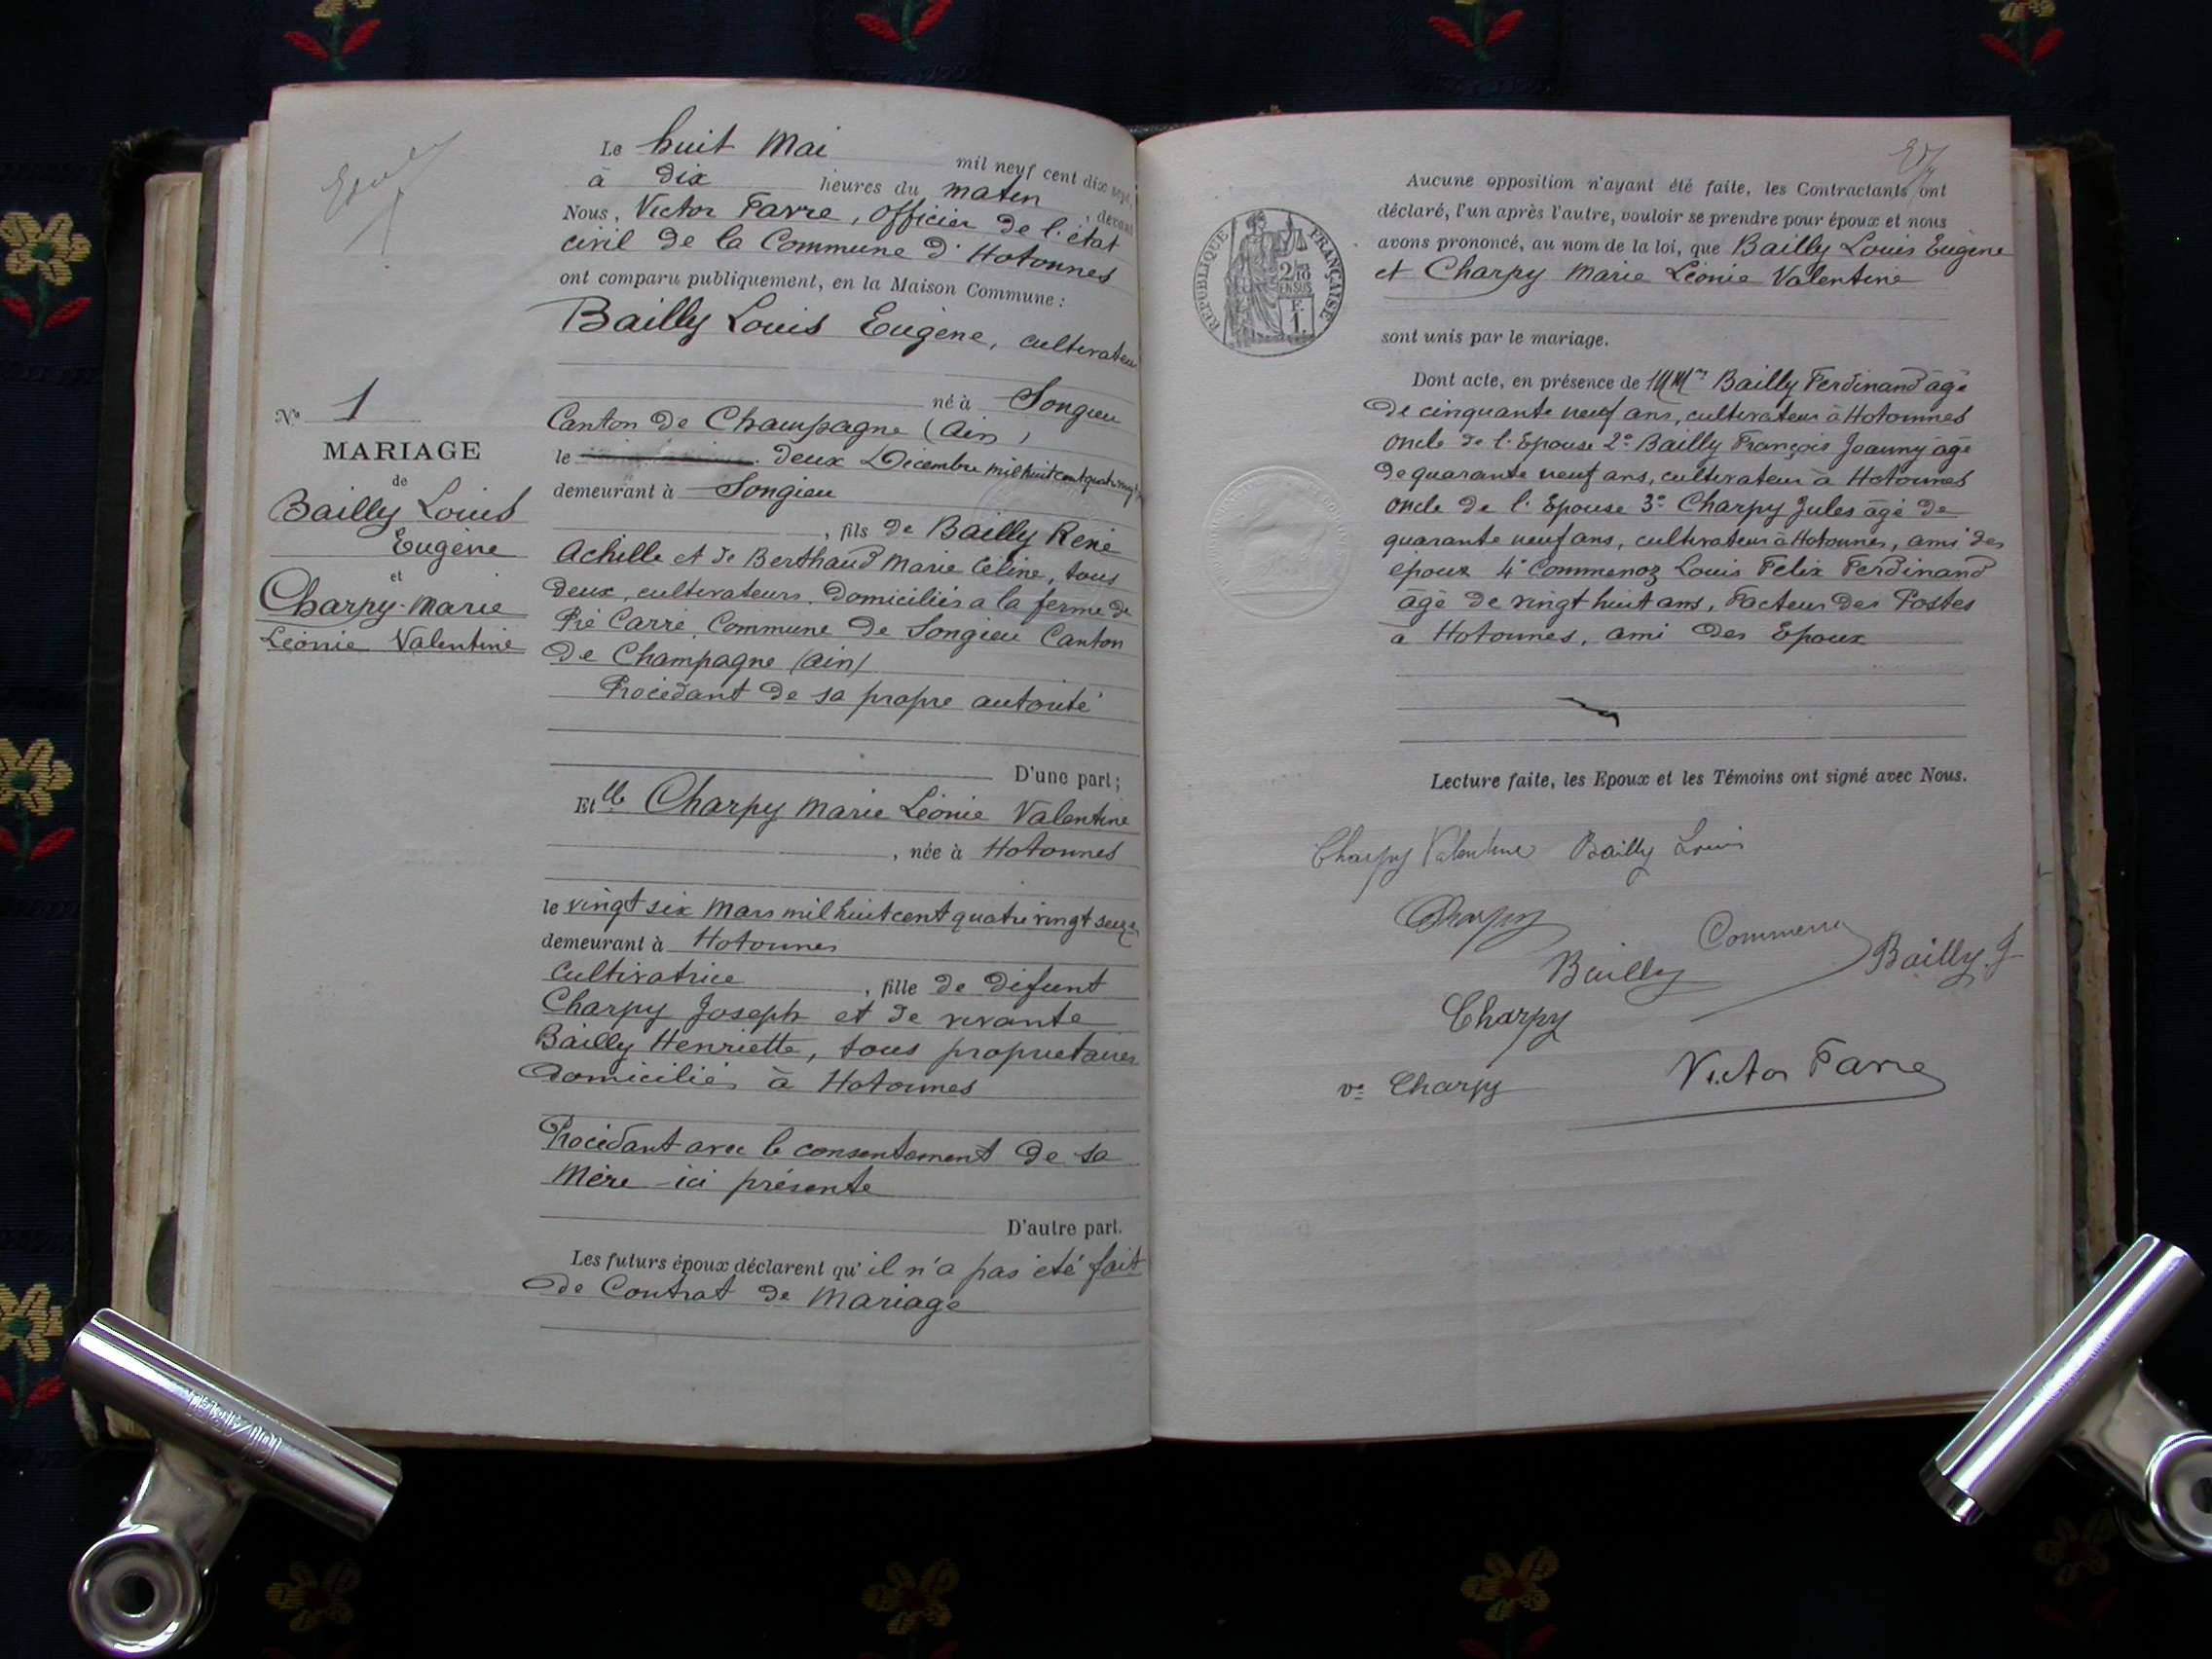 Le huit Mai mil neuf cent dix sept,
à dix heures du matin, devant
Nous, Victor Favre, Officier de l'état
civil de la Commune d'Hotonnes
ont comparu publiquement, en la Maison Commune :
Bailly Louis Eugène, cultivateur
né à Songieu
Canton de Champagne (Ain)
le deux Décembre mil huit cent quatre vingt
demeurant à Songieu
, fils de Bailly René
Achille et de Berthaud Marie Céline, tous
deux, cultivateurs domiciliés a la ferme de
Pré Carré, Commune de Songieu Canton
de Champagne (Ain)
Procédant de sa propre autorité
D'une part ;
Et lle Charpy Marie Léonie Valentine
, née à Hotonnes
le vingt six Mars mil huit cent quatre vingt seize
demeurant à Hotonnes
Cultivatrice, fille de défunt
Charpy Joseph et de vivante
Bailly Henriette, tous propriétaires
domiciliés à Hotonnes
Procédant avec le consentement de sa
Mère ici présente
D'autre part.
Les futurs époux déclarent qu'il n'a pas été fait
de Contrat de Mariage
No 1
MARIAGE
de
Bailly Louis
Eugène
et
Charpy Marie
Léonie Valentine
RÉPUBLIQUE FRANÇAISE
2/10
EN SUS
F.
1.
Aucune opposition n'ayant été faite, les Contractants ont
déclaré, l'un après l'autre, vouloir se prendre pour époux et nous
avons prononcé, au nom de la loi, que Bailly Louis Eugène
et Charpy Marie Léonie Valentine
sont unis par le mariage.
Dont acte, en présence de MMrs Bailly Ferdinand âgé
de cinquante neuf ans, cultivateur à Hotonnes
oncle de l'Epouse 2° Bailly François Joanny âgé
de quarante neuf ans, cultivateur à Hotonnes
oncle de l'Epouse 3° Charpy Jules âgé de
quarante neuf ans, cultivateur à Hotonnes, ami des
époux 4° Commenoz Louis Felix Ferdinand
âgé de vingt huit ans, Facteur des Postes
à Hotonnes, ami des Epoux
Lecture faite, les Epoux et les Témoins ont signé avec Nous.
Charpy Valentine Bailly Louis
Charpy
Commenoz
Bailly Bailly J
Charpy
Ve Charpy Victor Favre